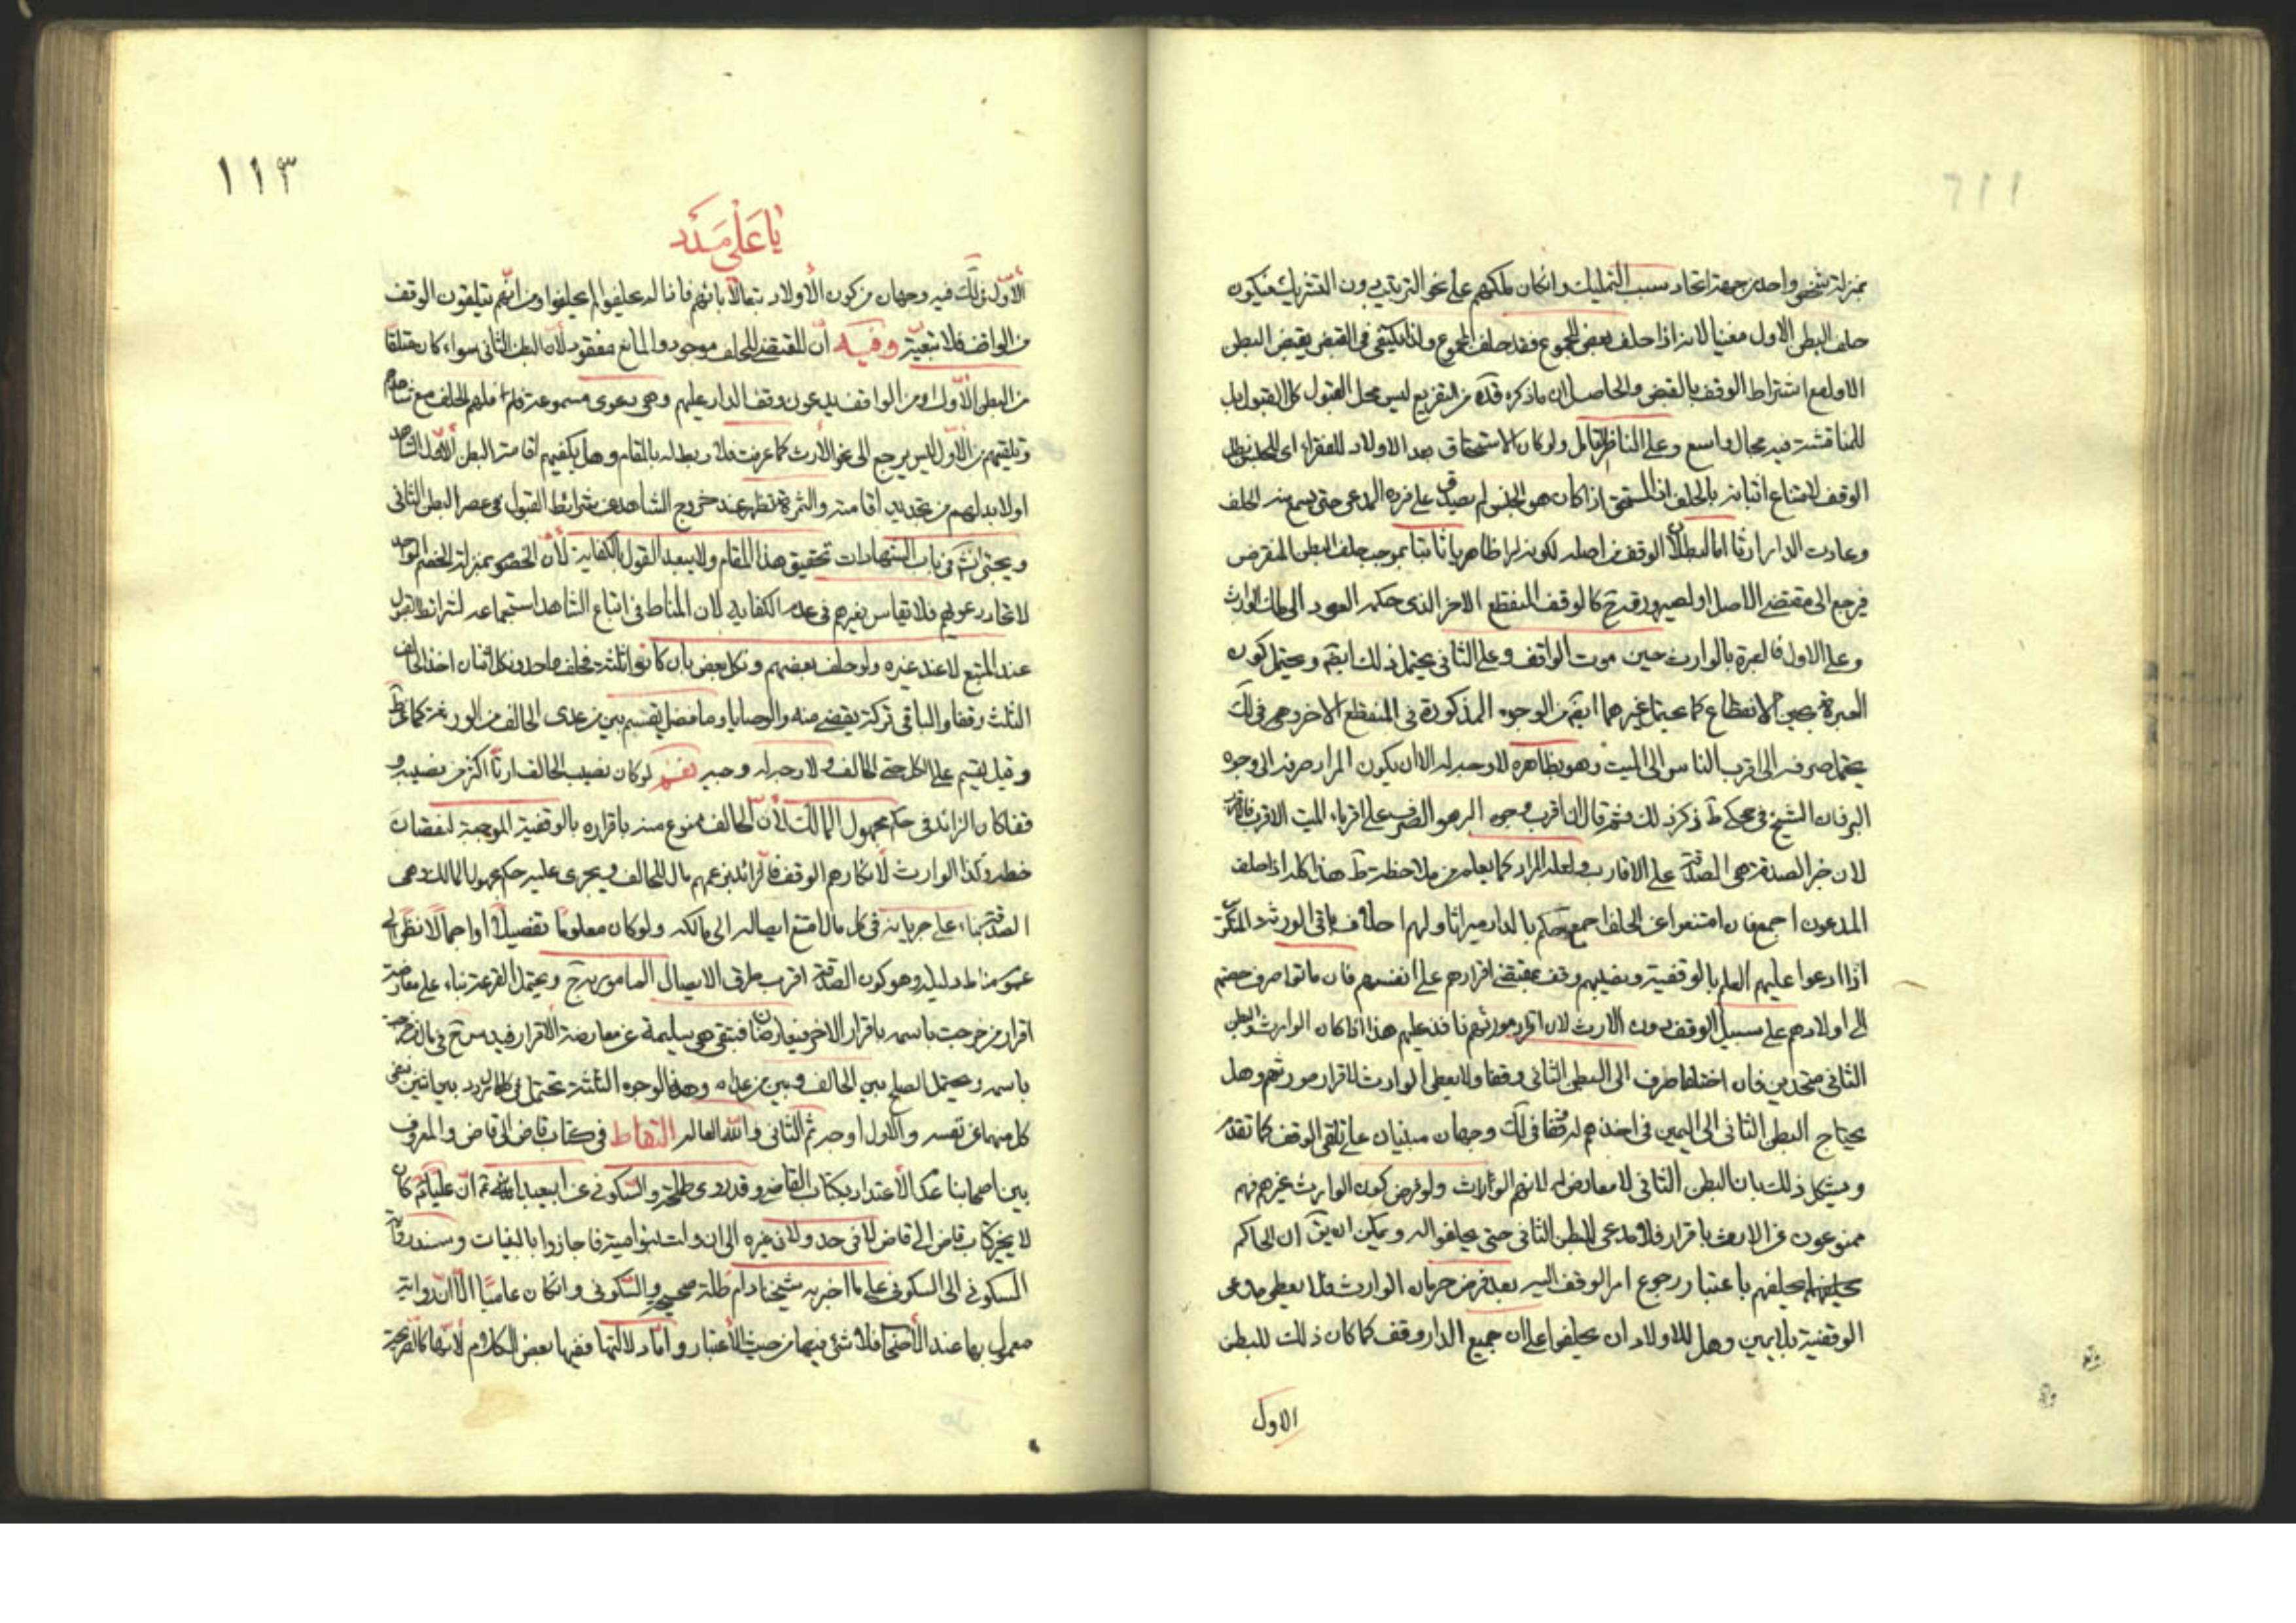 بمنزلة شخص واحد من جهة اتحاد سبب التمليك وان كان ملكهم على نحو الترتيب دون التشريك فيكون
حلف البطن الاول مغنيا لانه اذا حلف بعض المجموع فقد حلف المجموع ولذا يكتفى في القبض بقبض البطن
الاول مع اشتراط الوقف بالقبض والحاصل ان ما ذكره قده من التفريع ليس محل القبول كل القبول بل
للمناقشة فيه مجال واسع وعلى الناظر التامل ولو كان الاستحقاق بعد الاولاد للفقراء اى للجنس بطل
الوقف لامتناع اثباته بالحلف اذ المستحق اذا كان هو الجنس لم يصدق على فرده المدعى حتى يسمع منه الحلف
وعادت الدار ارثا اما لبطلان الوقف من اصله لكونه ظاهريا ثابتا بموجب حلف البطن المنقرض
فرجع الى مقتضى الاصل او لصيرورته ح كالوقف المنقطع الاخر الذى حكمه العود الى ملك الوارث
وعلى الاول فالعبرة بالوارث حين موت الواقف وعلى الثانى يحتمل ذلك ايضا ويحتمل كون
العبرة بحين الانقطاع كما يحتمل غيرهما ايضا من الوجوه المذكورة فى المنقطع الاخر وهى فى لك
يحتمل صرفه الى اقرب الناس الى الميت وهو بظاهره لا وجه له الا ان يكون المراد صرفه الى وجوه
البر فان الشيخ فى محكى ط ذكر ذلك ثم قال ان اقرب وجوه البر هو الصرف على اقرباء الميت الاقرب فالاقرب
لان خير الصدقة هى الصدقة على الاقارب ولعله المراد كما يعلم من ملاحظة ط هذا كله اذا حلف
المدعون اجمع فان امتنعوا عن الحلف اجمع حكم بالدار ميراثا ولهم احلاف باقى الورثة المنكرين
اذا ادعوا عليهم العلم بالوقفية ونصيبهم وقف بمقتضى اقرارهم على انفسهم فان ماتوا صرف حصتهم
الى اولادهم على سبيل الوقف دون الارث لان اقرار مورثهم نافذ عليهم هذا اذا كان الوارث والبطن
الثانى متحدين فان اختلفا صرف الى البطن الثانى وقفا ولا يعطى الوارث لاقرار مورثهم وهل
يحتاج البطن الثانى الى اليمين فى اخذهم له وقفا فى لك وجهان مبنيان على تلقى الوقف كما تقدم
ويشكل ذلك بان البطن الثانى لا معارض له لانهم الوارث ولو فرض كون الوارث غيرهم فهم
ممنوعون من الارث باقرار فلا مدعى للبطن الثانى حتى يحلفوا له ويمكن ان يق ان الحاكم
يحلفهم باعتبار رجوع امر الوقف اليه بعد فرض حرمان الوارث فلا يعطى مدعى
الوقفية بلا يمين وهل للاولاد ان يحلفوا على ان جميع الدار وقف كما كان ذلك للبطن
الاول
١١٣
يا على مدد
الأول فى لك فيه وجهان من كون الأولاد تبعا لآبائهم فاذا لم يحلفوا لم يحلفوا ومن انهم يتلقون الوقف
من الواقف فلا تبعية وفيه أن المقتضى للحلف موجود والمانع مفقود لأن البطن الثانى سواء كان متلقا
من البطن الأول او من الواقف يدعون وقف الدار عليهم وهى دعوى مسموعة فلهم الحلف مع شاهدهم
وتلقيهم من الأول ليس يرجع الى نحو الأرث كما عرفت فلا ربط له بالمقام وهل يكفيهم اقامة البطن الأول الشاهد
او لا بد لهم من تجديد اقامته والثمرة تظهر عند خروج الشاهد عن شرائط القبول فى عصر البطن الثانى
ويجئ انش فى باب الشهادات تحقيق هذا المقام ولا يبعد القول بالكفاية لأن الخصوم بمنزلة الخصم الواحد
لاتحاد دعويهم فلا تقاس بغيرهم فى عدم الكفاية لان المناط فى اتباع الشاهد استجماعه لشرائط القبول
عند المتبع لا عند غيره ولو حلف بعضهم ونكل بعض بان كانوا ثلثة فحلف واحد ونكل اثنان اخذ الحالف
الثلث وقفا والباقى تركة يقضى منه والوصايا وما فضل يقسم بين من عدى الحالف من الورثة كما عن ط
وقيل يقسم على الكل حتى الحالف ولا وجه له وجيه نعم لو كان نصيب الحالف ارثا اكثر من نصيبه و
قفا كان الزائد فى حكم مجهول المالك لأن الحالف ممنوع منه باقراره بالوقفية الموجبة لنقصان
حظه وكذا الوارث لانكارهم الوقف فالزائد بزعمهم مال للحالف ويجرى عليه حكم مجهول المالك وهى
الصدقة بناء على جريانه فى كل مال امتنع ايصاله الى مالكه ولو كان معلوما تفصيلا او اجمالا نظرا الى
عموم مناط دليله وهو كون الصدقة اقرب طرق الايصال المامور به ح ويحتمل القرعة بناء على معارضة
اقرار من خرجت باسمه باقرار الاخر فيتعارضان فتبقى هى سليمة عن معارضة الأقرار فيدرج فى مال من خرجت
باسمه ويحتمل الصلح بين الحالف وبين من عداه وهذه الوجوه الثلثة تحتمل فى كل مال تردد بين اثنين نفى
كل منهما عن نفسه والأول اوجه ثم الثانى والله العالم التقاط فى كتاب قاض الى قاض والمعروف
بين اصحابنا عدم الأعتداد بكتاب القاضى وقد روى طلحة والسكونى عن ابيعبدالله ع ان عليا ع كان
لا يجيز كتاب قاض الى قاض لا فى حد ولا فى غيره الى ان وليت بنو امية فاجازوا بالبينات وسند رواية
السكونى الى السكونى على ما اخبر به شيخنا دام ظله صحيح والسكونى وان كان عاميا الا ان روايته
معمول بها عند الأصحاب فلا شئ فيها من حيث الأعتبار وأما دلالتها ففيها بعض الكلام لأنها كالصريحة